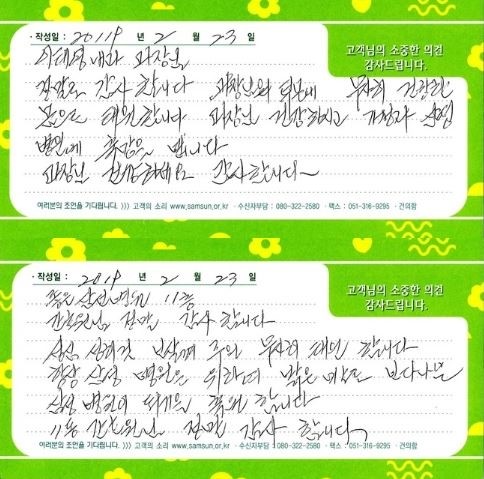 · 작성일 : 2019 년 2 월 23 일
고객님의 소중한 의견
감사드립니다.
이태영 내과 과장님
정말로 감사 합니다 과장님의 덕분에 무사히 건강한
몸으로 퇴원합니다 과장님 건강하시고 가정과 삼선
병원에 축감을 빕니다
과장님 건강하세요 감사합니다~
여러분의 조언을 기다립니다. ⟩⟩⟩ 고객의 소리 www.samsun.or.kr · 수신자부담 : 080-322-2580 · 팩스 : 051-316-9295 · 건의함
· 작성일 : 2019 년 2 월 23 일
고객님의 소중한 의견
감사드립니다.
좋은 삼선병원 11층
간호원님 정말 감사 합니다
성심 성의껏 보살펴 주의 무사히 퇴원 합니다
항상 삼선 병원을 위하여 밝은 보다나은
삼선 병원이 되기를 합니다
11층 간호원님 정말 감사 합니다
여러분의 조언을 기다립니다. ⟩⟩⟩ 고객의 소리 www.samsun.or.kr · 수신자부담 : 080-322-2580 · 팩스 : 051-316-9295 · 건의함